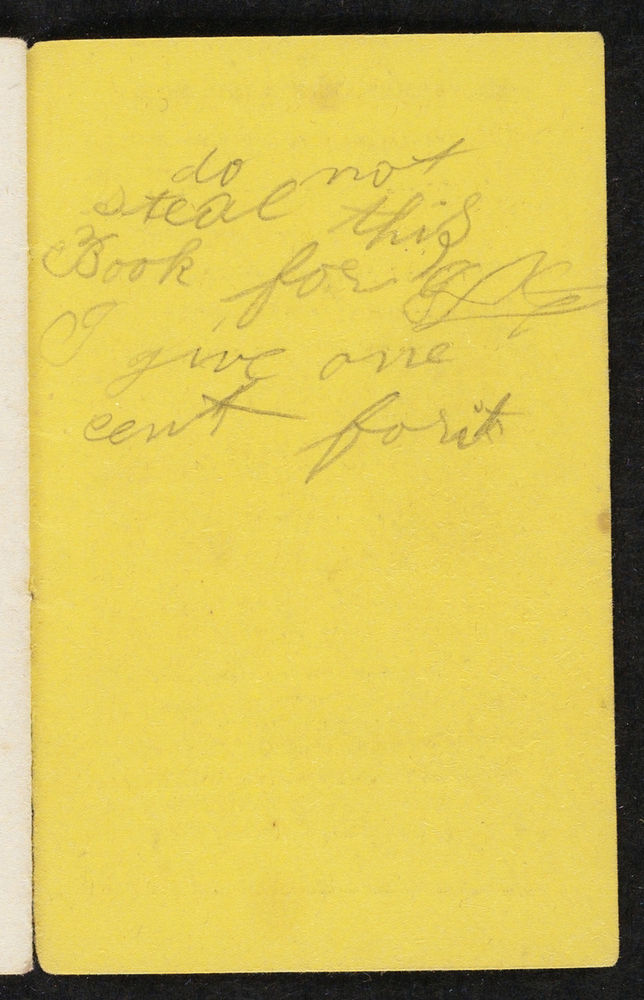 do not
steal this
Book for
I give one
cent for it